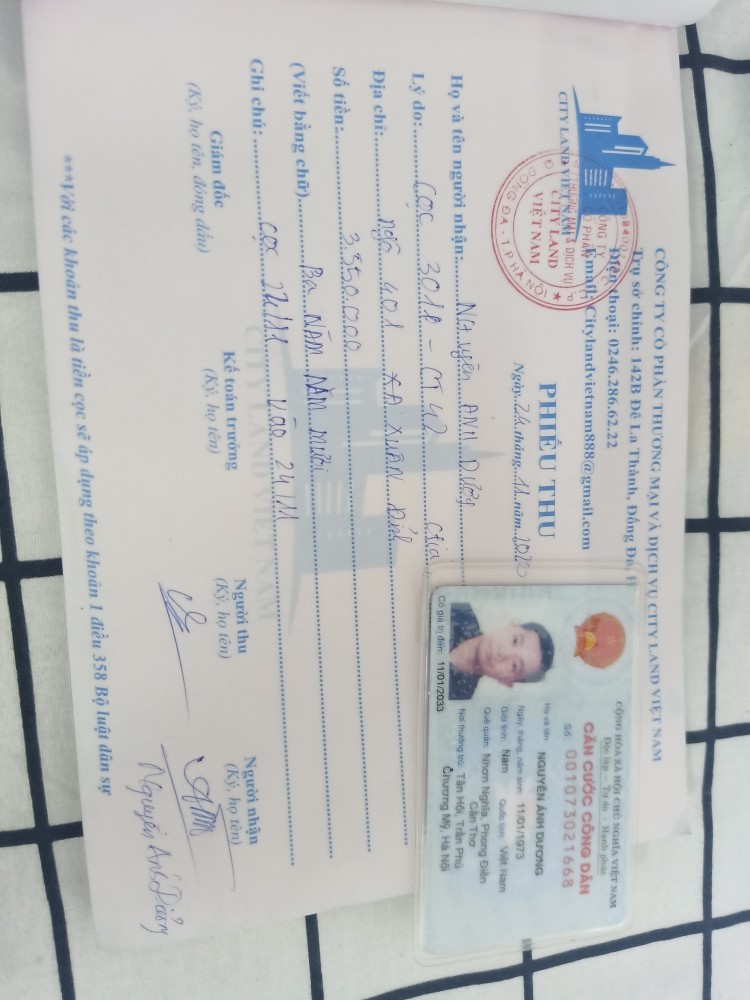 CÔNG TY CỔ PHẦN THƯƠNG MẠI VÀ DỊCH VỤ CITY LAND VIỆT NAM
Trụ sở chính: 142B Đê La Thành, Đống Đa, H
Điện thoại: 0246.286.62.22
Email: Citylandvietnam888@gmail.com
CITY LAND VIỆT NAM
CÔNG TY
CỔ PHẦN
THƯƠNG MẠI & DỊCH VỤ
CITY LAND
VIỆT NAM
ĐỐNG ĐA - T.P HÀ NỘI
PHIẾU THU
Ngày 24 tháng 11 năm 2020
Họ và tên người nhận: Nguyễn Ánh Dương
Lý do: Cọc 301 - CT 42
Địa chỉ: Ngõ 401 Xã Xuân Đỉnh
Số tiền: 3.550.000
(Viết bằng chữ) Ba Năm Năm mươi
Ghi chú: Cọc 22/11 Vào 24/11
Giám đốc
(Ký, họ tên, đóng dấu)
Kế toán trưởng
(Ký, họ tên)
Người thu
(Ký, họ tên)
Người nhận
(Ký, họ tên)
Nguyễn Ánh Dương
***Với các khoản thu là tiền cọc sẽ áp dụng theo khoản 1 điều 358 Bộ luật dân sự
CITY LAND VIET NAM
CỘNG HÒA XÃ HỘI CHỦ NGHĨA VIỆT NAM
Độc lập - Tự do - Hạnh phúc
CĂN CƯỚC CÔNG DÂN
Số: 001073021668
Họ và tên: NGUYỄN ÁNH DƯƠNG
Ngày, tháng, năm sinh: 11/01/1973
Giới tính: Nam Quốc tịch: Việt Nam
Quê quán: Nhơn Nghĩa, Phong Điền
Cần Thơ
Nơi thường trú: Tân Hội, Trần Phú
Chương Mỹ, Hà Nội
Có giá trị đến: 11/01/2033